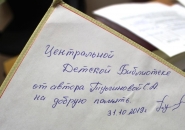 Центральной
Детской Библиотеке
от автора С.А.
на добрую память
31.10.2019г.